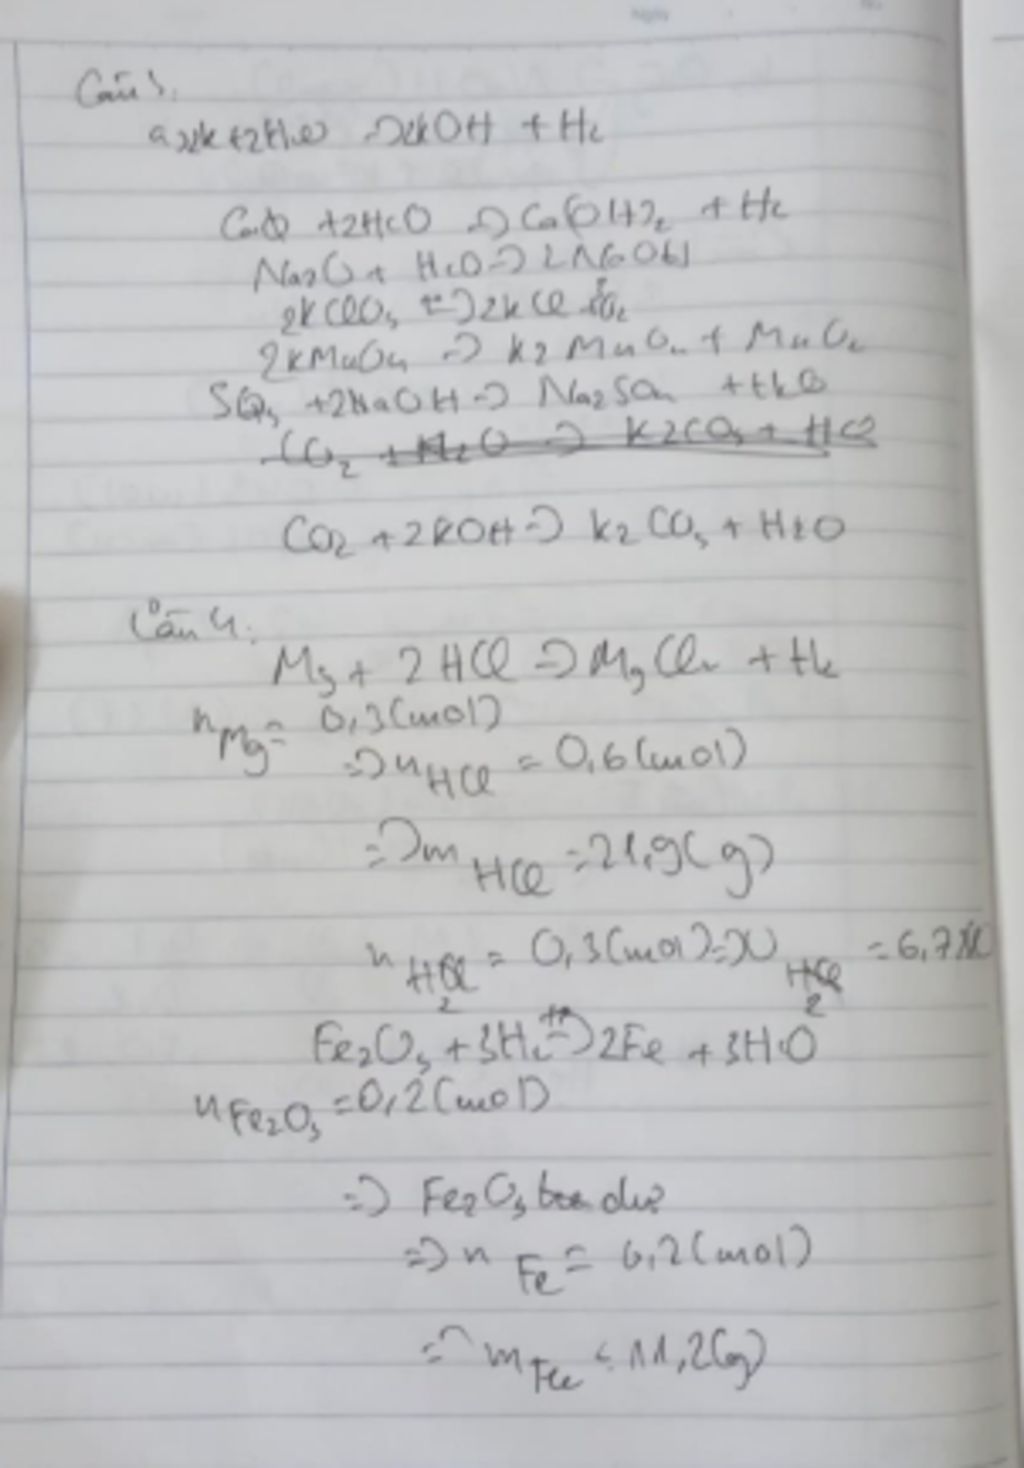 Câu 3.
a, 2K + 2H2O => 2KOH + H2
Ca + 2H2O => Ca(OH)2 + H2
Na2O + H2O => 2NaOH
2KClO3 => 2KCl + 3O2
2KMnO4 => K2MnO4 + MnO2
SO3 + 2NaOH => Na2SO4 + H2O
CO2 + H2O => K2CO3 + H2
CO2 + 2KOH => K2CO3 + H2O
Câu 4.
Mg + 2HCl => MgCl2 + H2
nMg = 0,3 (mol)
=> nHCl = 0,6 (mol)
=> mHCl = 21,9 (g)
nH2 = 0,3 (mol) => VH2 = 6,72
Fe2O3 + 3H2 => 2Fe + 3H2O
nFe2O3 = 0,2 (mol)
=> Fe2O3 dư
=> nFe = 0,2 (mol)
=> mFe = 11,2 (g)